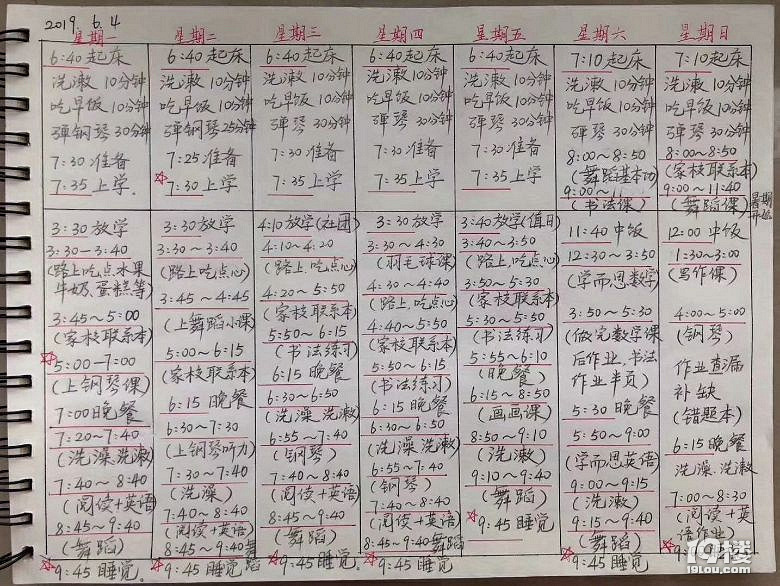 2019. 6. 4
星期一
6:40起床
洗漱 10分钟
吃早饭 10分钟
弹钢琴 30分钟
7:30 准备
7:35 上学.
3:30 放学
3:30—3:40
(路上吃点水果
牛奶.蛋糕等)
3:45~5:00
(家校联系本)
☆5:00~7:00
(上钢琴课)
7:00晚餐
7:20~7:40
(洗澡.洗漱)
7:40~8:40
(阅读+英语)
8:45~9:40
(舞蹈)
☆9:45 睡觉.
星期二
6:40 起床
洗漱 10分钟
吃早饭 10分钟
弹钢琴25分钟
7:25 准备
☆7:30 上学
3:30 放学
3:30~3:40
(路上吃点心)
3:45~4:45
(上舞蹈小课)
5:00~6:15
(家校联系本)
6:15 晚餐
6:30~7:30
(上钢琴听力)
7:30~7:40
(洗澡)
7:40~8:40
(阅读+英语)
8:45~9:40舞蹈
☆9:45 睡觉
星期三
6:40起床
洗漱 10分钟
吃早饭 10分钟
弹琴 30分钟
7:30 准备
7:35 上学
4:10 放学(社团)
4:10~4:20
(路上.吃点心)
4:20~5:50
(家校联系本)
5:50~6:15
(书法练习)
6:15 晚餐
6:30~6:50
(洗澡.洗漱)
6:55~7:40
(钢琴)
7:40~8:40
(阅读+英语)
8:45~9:40
(舞蹈)
☆9:45 睡觉
星期四
6:40起床
洗漱 10分钟
吃早饭 10分钟
弹琴 30分钟
7:30 准备
7:35 上学
3:30 放学
3:30~4:30
(羽毛球课)
4:30~4:40
(路上.吃点心)
4:40~5:50
(家校联系本)
5:50~6:15
(书法练习)
6:15 晚餐
6:30~6:50
(洗澡.洗漱)
6:55~7:40
(钢琴)
7:40~8:40
(阅读+英语)
8:45~9:40舞蹈
☆9:45 睡觉
星期五
6:40 起床
洗漱 10分钟
吃早饭 10分钟
弹琴 30分钟
7:30 准备
7:35 上学
3:40 放学(值日)
3:40~3:50
(路上.吃点心)
3:50~5:30
(家校联系本)
5:30~5:50
(书法练习)
5:55~6:10
(晚餐)
6:15~8:50
(画画课)
8:50~9:10
(洗漱)
9:10~9:40
(舞蹈)
☆9:45 睡觉
星期六
7:10起床
洗漱 10分钟
吃早饭 10分钟
弹琴 30分钟
8:00~8:50
(舞蹈基本功)
9:00~11
(书法课)
11:40 中饭
12:30~3:50
(学而思数学)
3:50~5:30
(做完数学课
后作业.书法
作业半页)
5:30 晚餐
5:50~9:00
(学而思英语)
9:00~9:15
(洗漱)
9:15~9:40
(舞蹈)
☆9:45 睡觉
星期日
7:10起床
洗漱 10分钟
吃早饭 10分钟
弹琴 30分钟
8:00~8:50
(家校联系本)
9:00~11:40
(舞蹈课)
暑期
开始
12:00 中饭
11:30~3:00
(写作课)
4:00~5:00
(钢琴)
作业查漏
补缺
(错题本)
6:15 晚餐
洗澡.洗漱
7:00~8:30
(阅读+英
语作业)
☆9:45
19楼
19lou.com